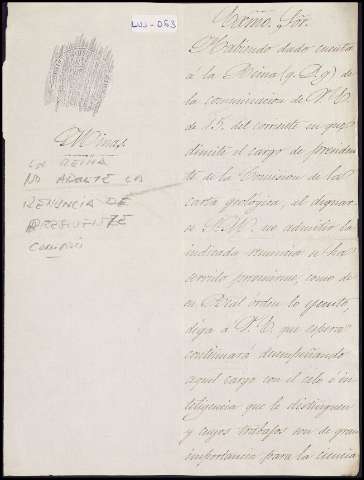 LUJ-053
Excmo. Sor.
Habiendo dado cuenta
á la Reina (q. D. g.) de
la comunicacion de V. E.
de 15. del corriente en que
dimite el cargo de presiden-
te de la Comision de la
carta geológica, al dignar-
se S. M. no admitir la
indicada renuncia se ha
servido prevenirme, como de
su Real orden lo ejecuto,
diga á V. E. que espera
continuará desempeñando
aquel cargo con el celo é in-
teligencia que le distinguen
y cuyos trabajos son de gran
importancia para la ciencia
Minas
LA REINA
NO ADMITE LA
RENUNCIA DE
PRESIDENTE